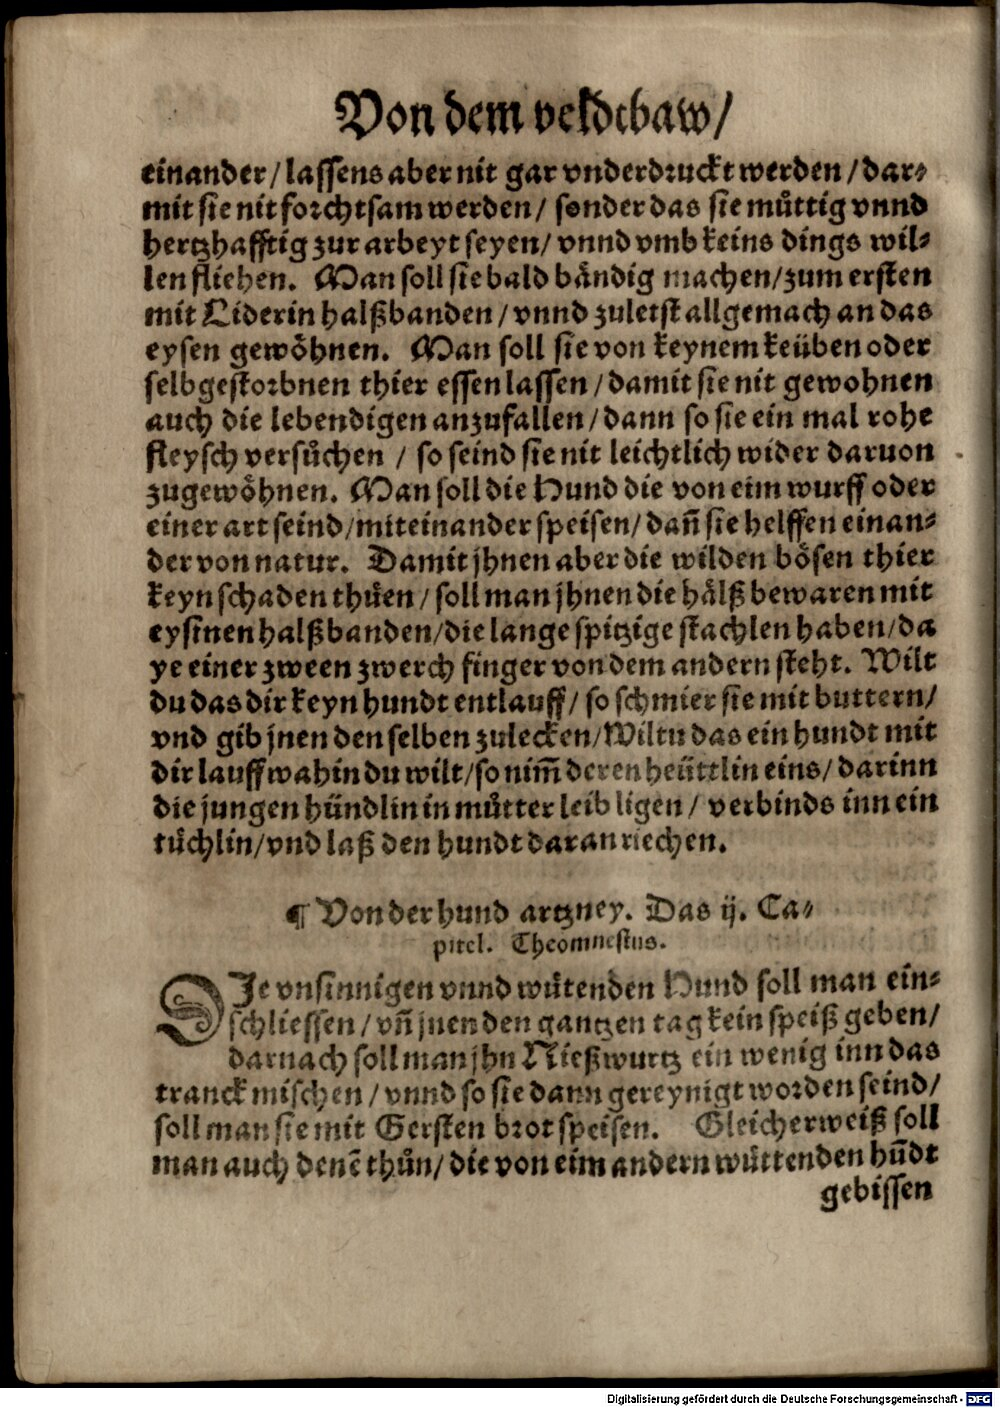 Von dem veldtbaw/
einander/ lassens aber nit gar vnderdruckt werden/ dar⸗
mit sie nit forchtsam werden/ sonder das sie muͤttig vnnd
hertzhafftig zur arbeyt seyen/ vnnd vmb keins dings wil⸗
len fliehen. Man soll sie bald baͤndig machen/ zum ersten
mit Liderin halßbanden/ vnnd zuletst allgemach an das
eysen gewoͤhnen. Man soll sie von keynem keüben oder
selbgestorbnen thier essen lassen/ damit sie nit gewohnen
auch die lebendigen anzufallen/ dann so sie ein mal rohe
fleysch versuͤchen/ so seind sie nit leichtlich wider daruon
zugewoͤhnen. Man soll die Hund die von eim wurff oder
einer art seind/ miteinander speisen/ dañ sie helffen einan⸗
der von natur. Damit jhnen aber die wilden boͤsen thier
keyn schaden thuͤen/ soll man jhnen die haͤlß bewaren mit
eysinen halßbanden/ die lange spitzige stachlen haben/ da
ye einer zween zwerch finger von dem andern steht. Wilt
du das dir keyn hundt entlauff/ so schmier sie mit buttern/
vnd gib jnen denselben zulecken/ Wiltu das ein hundt mit
dir lauff wahin du wilt/ so nim̃ deren heüttlin eins/ darinn
die jungen hündlin in muͤtter leib ligen/ verbinds inn ein
tuͤchlin/ vnd laß den hundt daran riechen.
¶ Von der hund artzney. Das ij. Ca⸗
pitel. Theomnestus.
DJe vnsinnigen vnnd wuͤtenden Hund soll man ein⸗
schliessen/ vñ jnen den gantzen tag kein speiß geben/
darnach soll man jhn Nießwurtz ein wenig inn das
tranck mischen/ vnnd so sie dann gereynigt worden seind/
soll man sie mit Gersten brot speisen. Gleicherweiß soll
man auch denẽ thuͤn/ die von eim andern wuͤttenden hũdt
gebissen
Digitalisierung gefördert durch die Deutsche Forschungsgemeinschaft - DFG